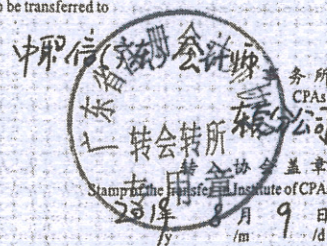 o be transferred to
中职信(广东)会计师
事务所
CPAs
分公司
广东省
转会转所
专用章
转入协会盖章
Stamp of the Transfer-in Institute of CPA
年 8 月 9 日
/y /m /d